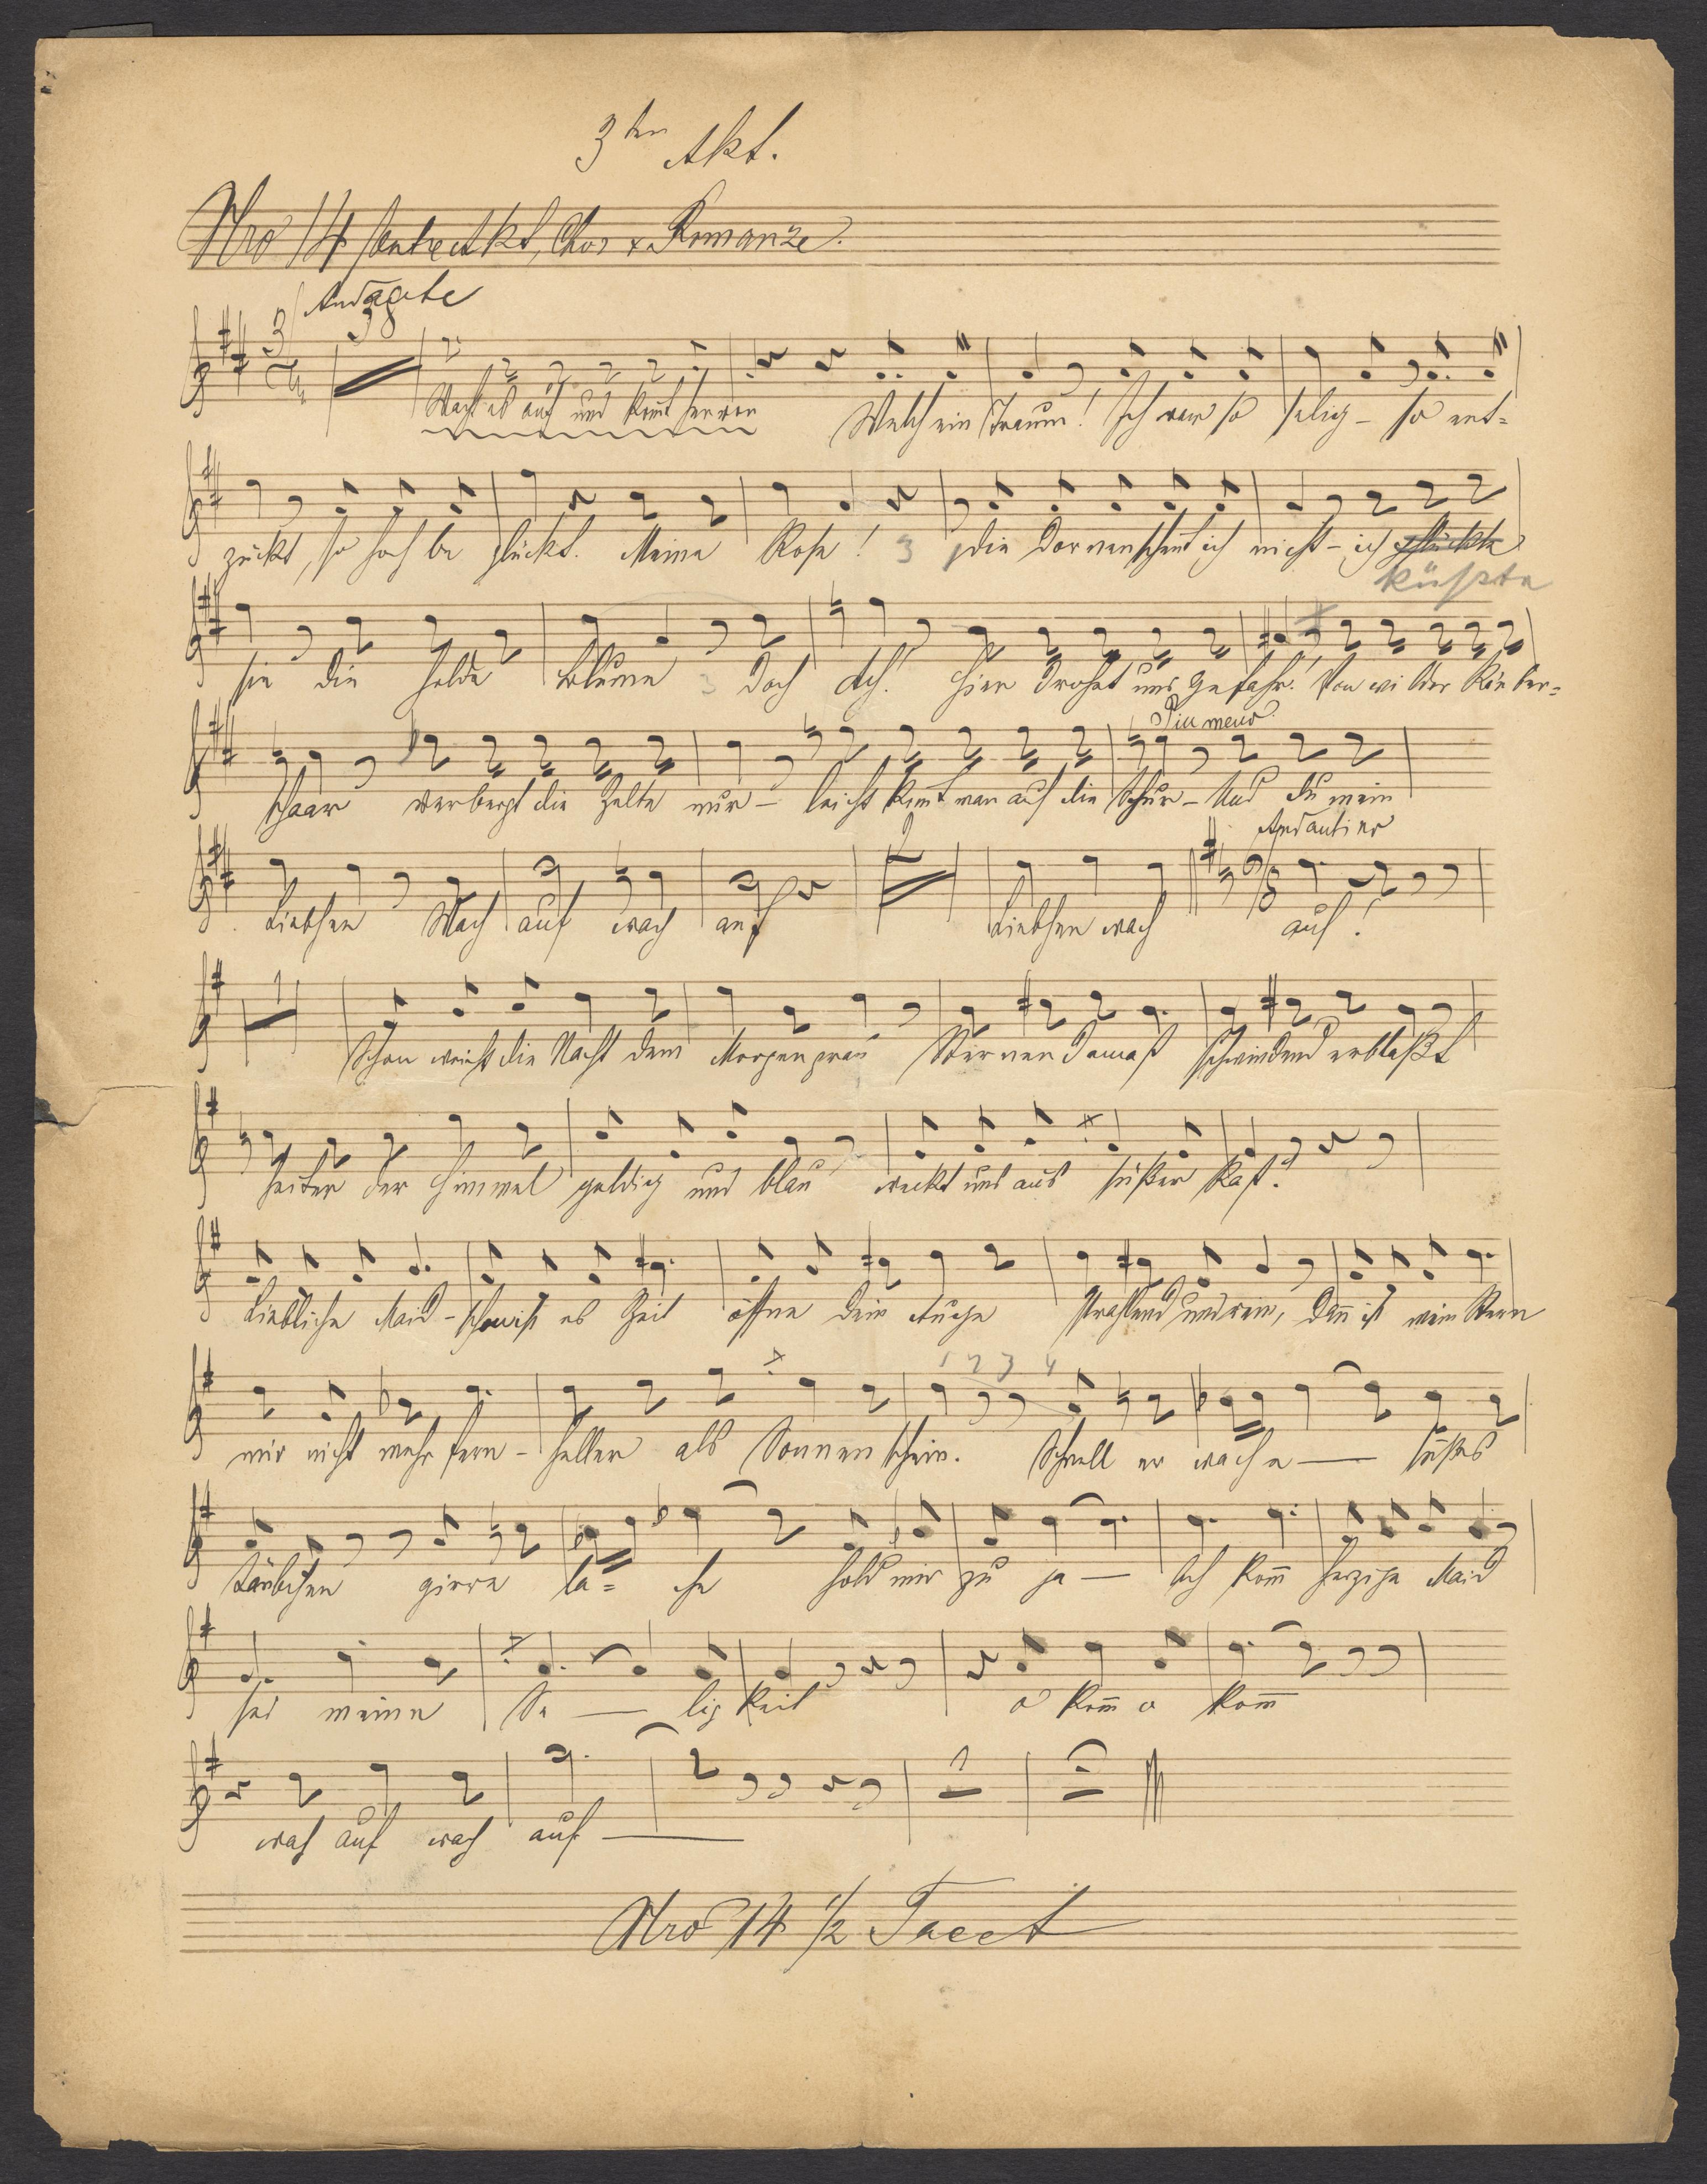 3ten Akt.
Nro 14 Entreakt, Chor & Romanze.
Andante
3 38
Wacht auf und kom̄t herren
Welch ein Traum! Ich war so selig – so ent=
zückt, so hoch be glückt. Meine Rose! 3 die Dornen scheut ich nicht – ich pflückte
küßte
sie die holde Blume 3 doch Ach! hier drohet uns Gefahr! Von wilder Räuber=
Piu meno
schaar verbergt die Zelte nur – leicht kom̄t man auf die Spur – Und du mein
Andantino
2 6/8
Liebchen Wach auf wach auf Liebchen wach auf!
1
Schon weicht die Nacht dem Morgengrau Sternendamast schwindend erblaßt
heiter der Himmel goldig und blau weckt uns aus süßer Rast.
Liebliche Maid – schon ist es Zeit öffne dein Auge strahlend und rein, dan̄ ist mein Stern
1 2 3 4
mir nicht mehr fern – heller als Sonnenschein. Schnell er wache — süßes
Täubchen girre la= che hold mir zu ja — Ach kom̄ herzige Maid
sei meine Se — ligkeit o kom̄ o kom̄
1
wach auf wach auf —
Nro 14 1/2 Tacet